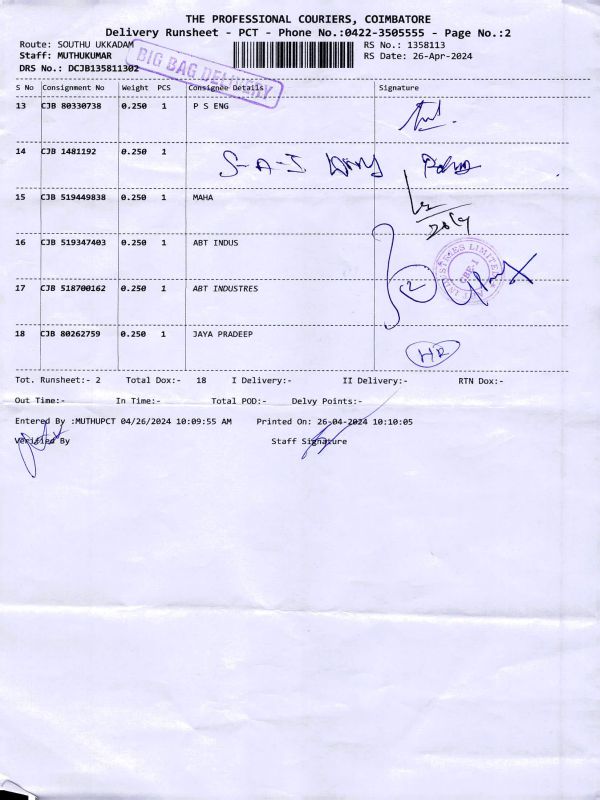 THE PROFESSIONAL COURIERS, COIMBATORE
Delivery Runsheet - PCT - Phone No.:0422-3505555 - Page No.:2
Route: SOUTHU UKKADAM RS No.: 1358113
Staff: MUTHUKUMAR RS Date: 26-Apr-2024
DRS No.: DCJB135811302
BIG BAG DELIVERY
S No Consignment No Weight PCS Consignee Details Signature
13 CJB 80330738 0.250 1 P S ENG
14 CJB 1481192 0.250 1
S-A-I
15 CJB 519449838 0.250 1 MAHA
16 CJB 519347403 0.250 1 ABT INDUS
INDUSTRIES LIMITED
CBE-1
2
17 CJB 518700162 0.250 1 ABT INDUSTRES
18 CJB 80262759 0.250 1 JAYA PRADEEP
HR
Tot. Runsheet:- 2 Total Dox:- 18 I Delivery:- II Delivery:- RTN Dox:-
Out Time:- In Time:- Total POD:- Delvy Points:-
Entered By :MUTHUPCT 04/26/2024 10:09:55 AM Printed On: 26-04-2024 10:10:05
Verified By Staff Signature